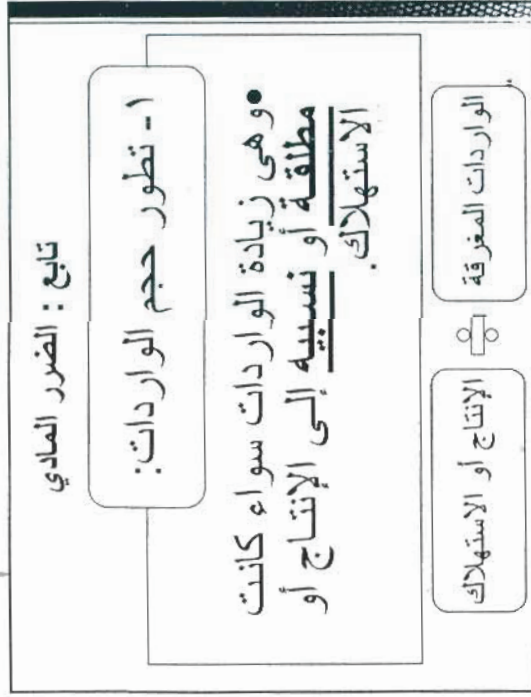 تابع : الضرر المادي
١ - تطور حجم الواردات:
•وهى زيادة الواردات سواء كانت
مطلقة أو نسبيه إلى الإنتاج أو
الاستهلاك.
الواردات المغرقة ÷ الإنتاج أو الاستهلاك